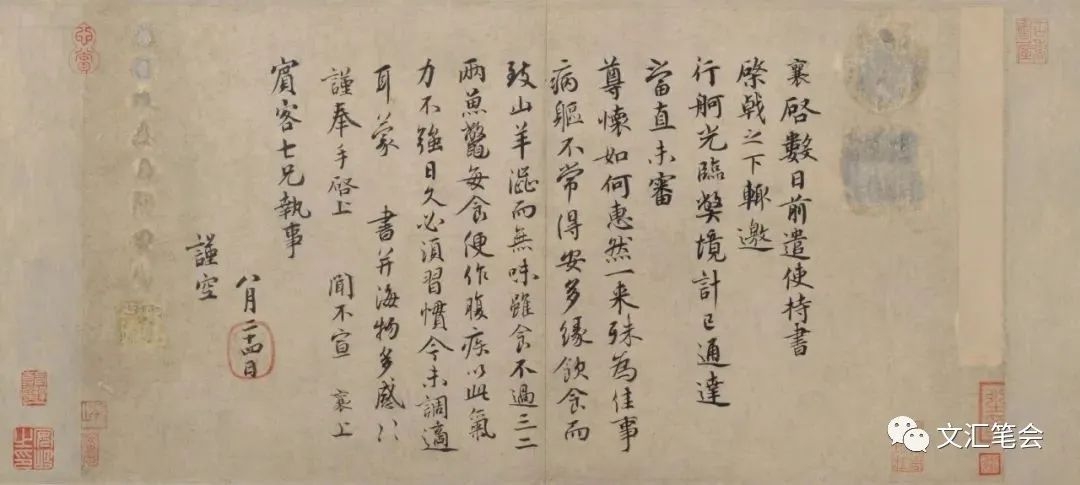 襄啓數日前遣使持書
棨戟之下輙邀
行舸光臨獘境計已通達
當直未審
尊懷如何惠然一来殊為佳事
病軀不常得安多緣飲食而
致山羊澀而無味雖食不過三二
兩魚鼈每食便作腹疾以此氣
力不強日久必須習慣今未調適
耳蒙 書并海物多感〻
謹奉手啓上 聞不宣 襄上
賓客七兄執事
八月二十四日
謹空
文汇笔会